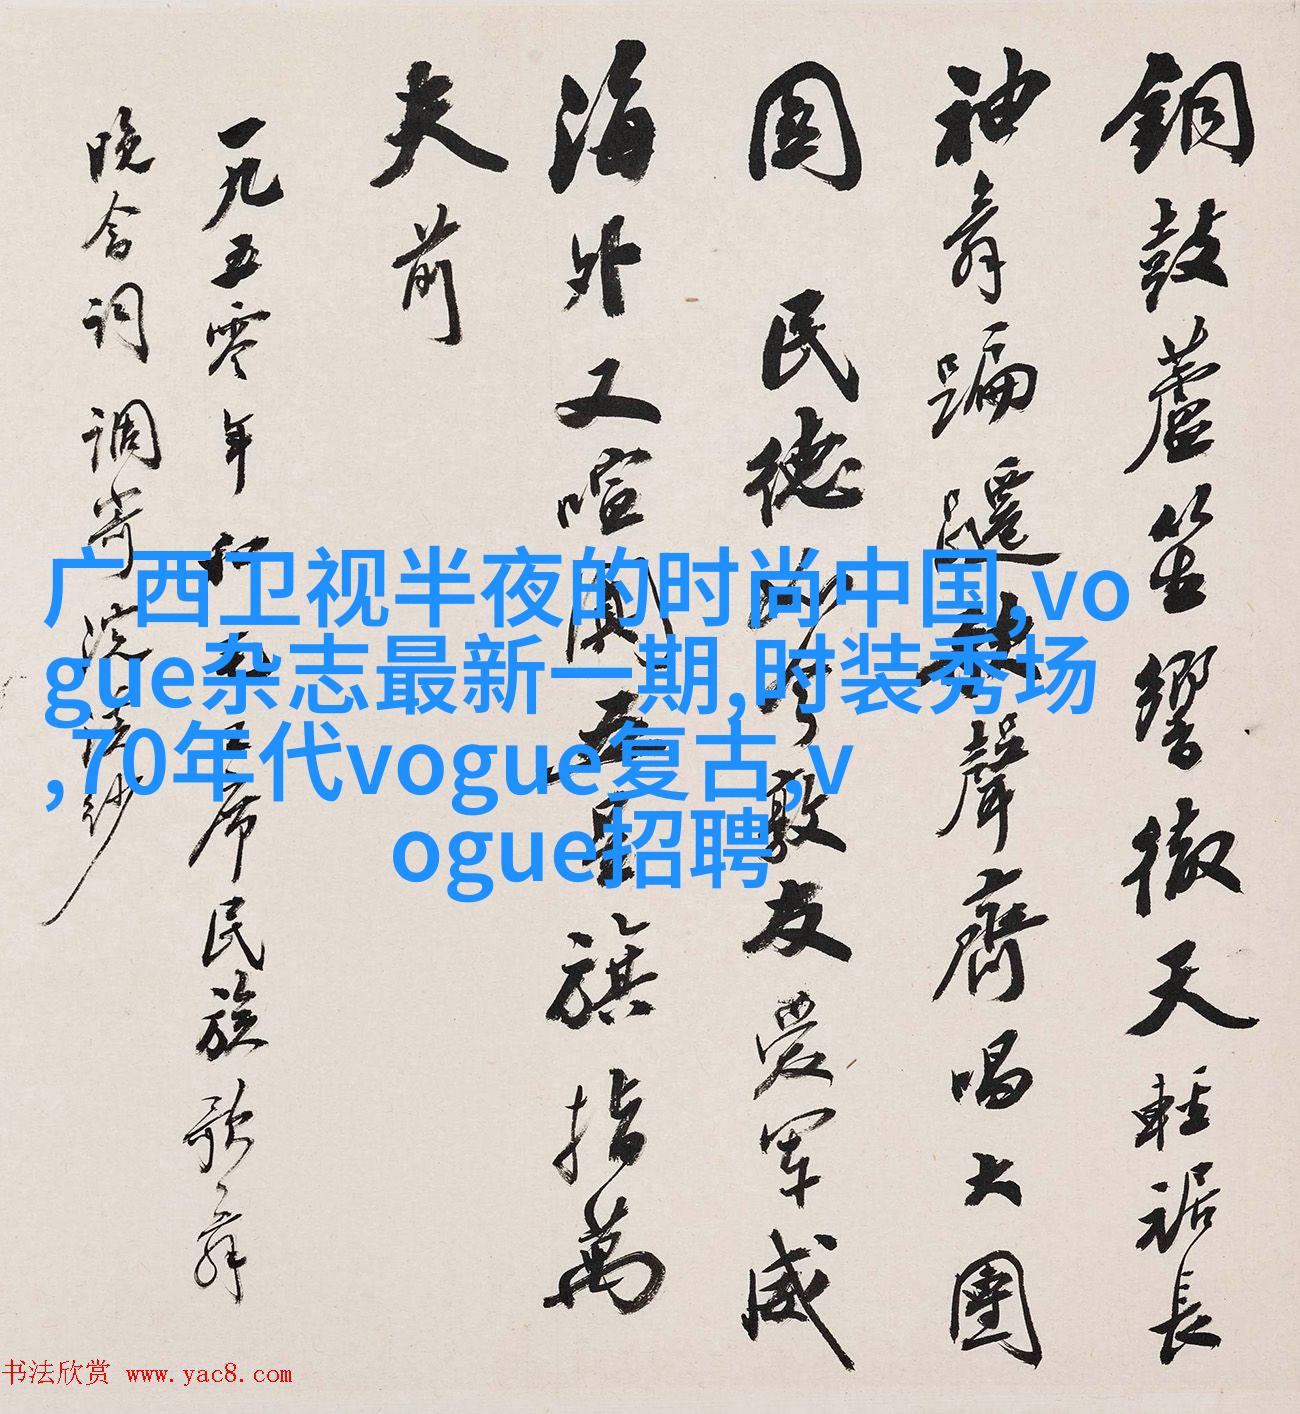 銅鼓蘆笙響徹天輕裾長
袖舞蹁躚歌聲齊唱大團
圓民德敦友愛軍威
海外又喧闐五星旗指萬
夫前
一九五零年和席民族歌舞
晚會词调寄浣溪纱
广西卫视半夜的时尚中国,vo
gue杂志最新一期,时装秀场
,70年代vogue复古,v
ogue招聘
书法欣赏 www.yac8.com